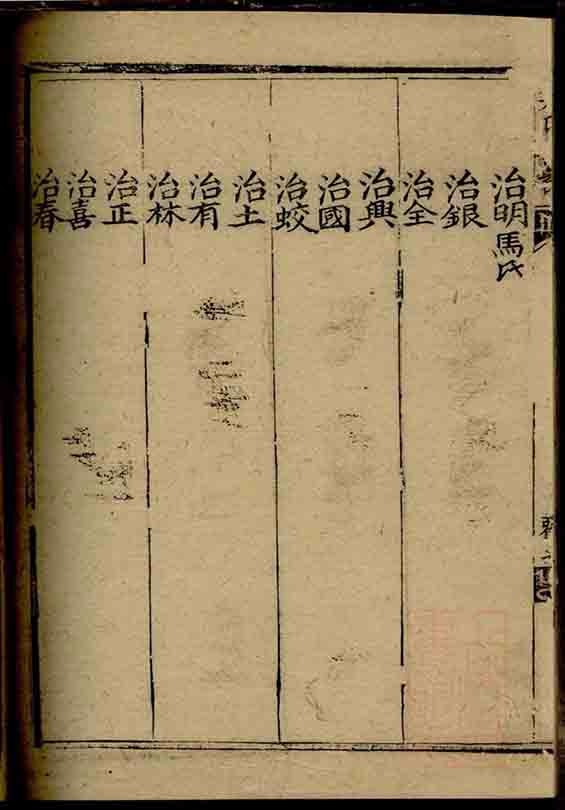 治明馬氏
治銀
治全
治興
治國
治蛟
治土
治有
治林
治正
治喜
治春